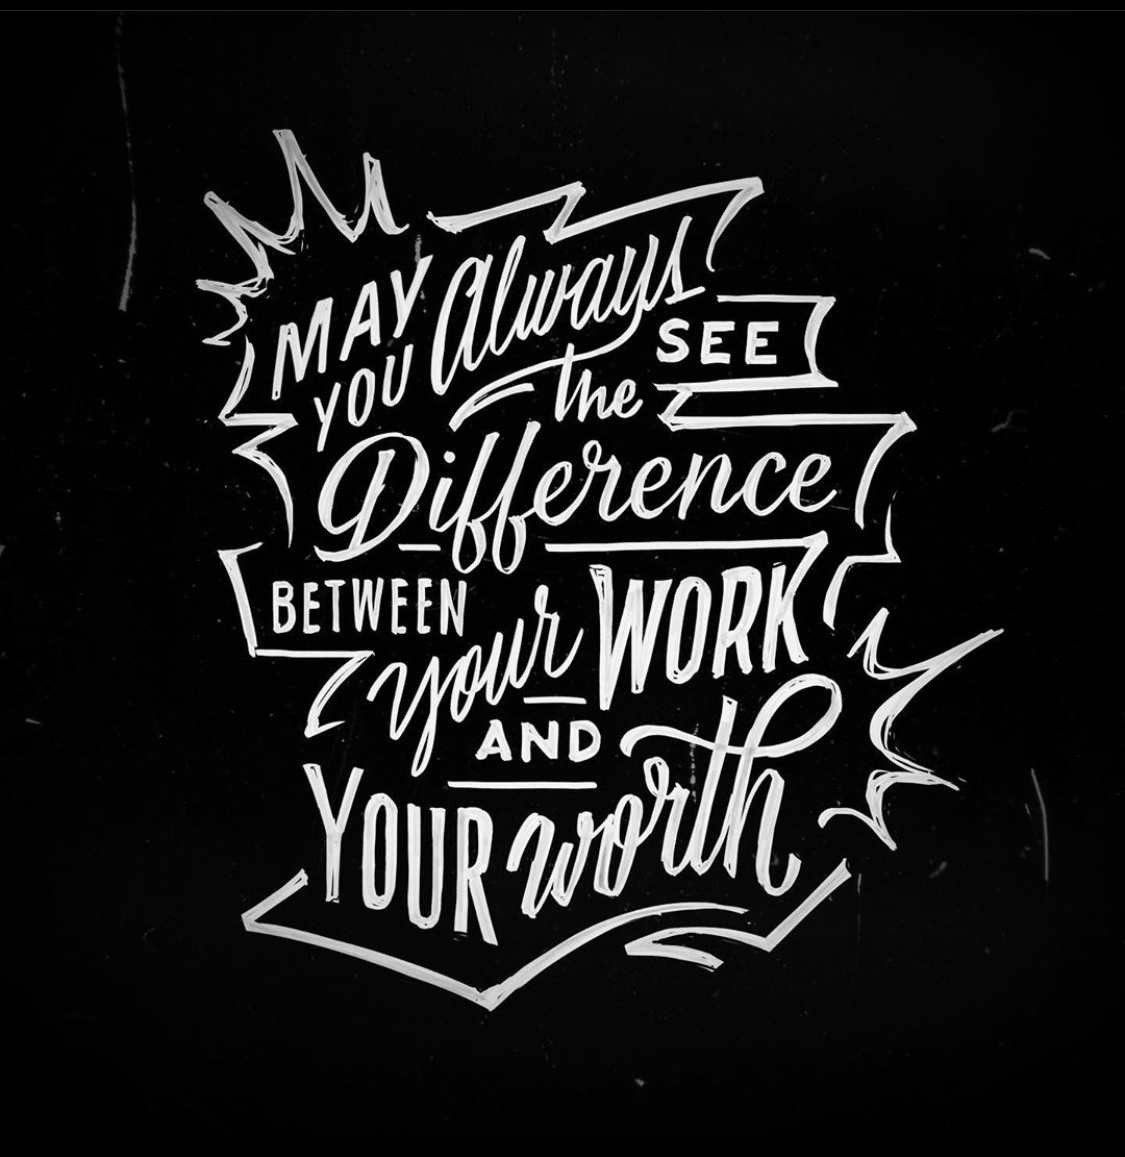 MAY Always
YOU SEE
the
Difference
BETWEEN
your WORK
AND
YOUR worth